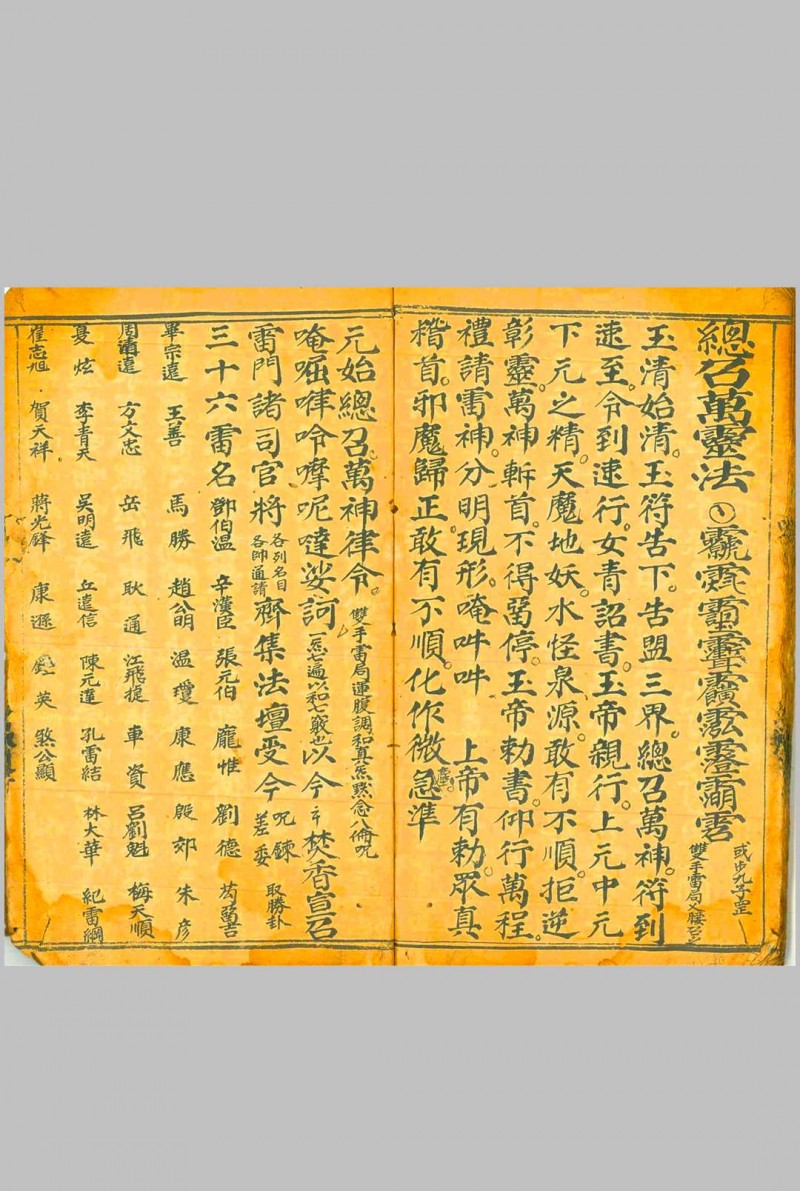 總召萬靈法
或步九子罡
雙手雷局乂腰召之
玉清始清。玉符告下。告盟三界。總召萬神。符到
速至。令到速行。女青詔書。玉帝親行。上元中元
下元之精。天魔地妖。水怪泉源。敢有不順。拒逆
彰靈。萬神斬首。不得畱停。玉帝勅書。仰行萬程。
禮請雷神。分明現形。唵吽吽 上帝有勅。眾真
稽首。邪魔歸正。敢有不順。化作微塵。急準
元始總召萬神律令。雙手雷局運腹調和真炁黙念八倫呪
唵啒㗚唥嚤呢噠娑訶 一炁七遍以和七 也 以今 焚香宣召
雷門諸司官將 各列名目 各帥通請 齊集法壇受今 呪鍊 差委 取勝卦
三十六雷名 鄧伯温 辛漢臣 張元伯 龐惟 劉德 苟萬吉
畢宗遠 王善 馬勝 趙公明 温瓊 康應 殷郊 朱彦
周 遠 方文忠 岳飛 耿通 江飛捷 車資 呂劉魁 梅天順
夏炫 李青天 吳明遠 丘遠信 陳元達 孔雷結 林大華 紀雷綱
崔志旭 賀天祥。蔣光鋒 康遜 英 煞公顯